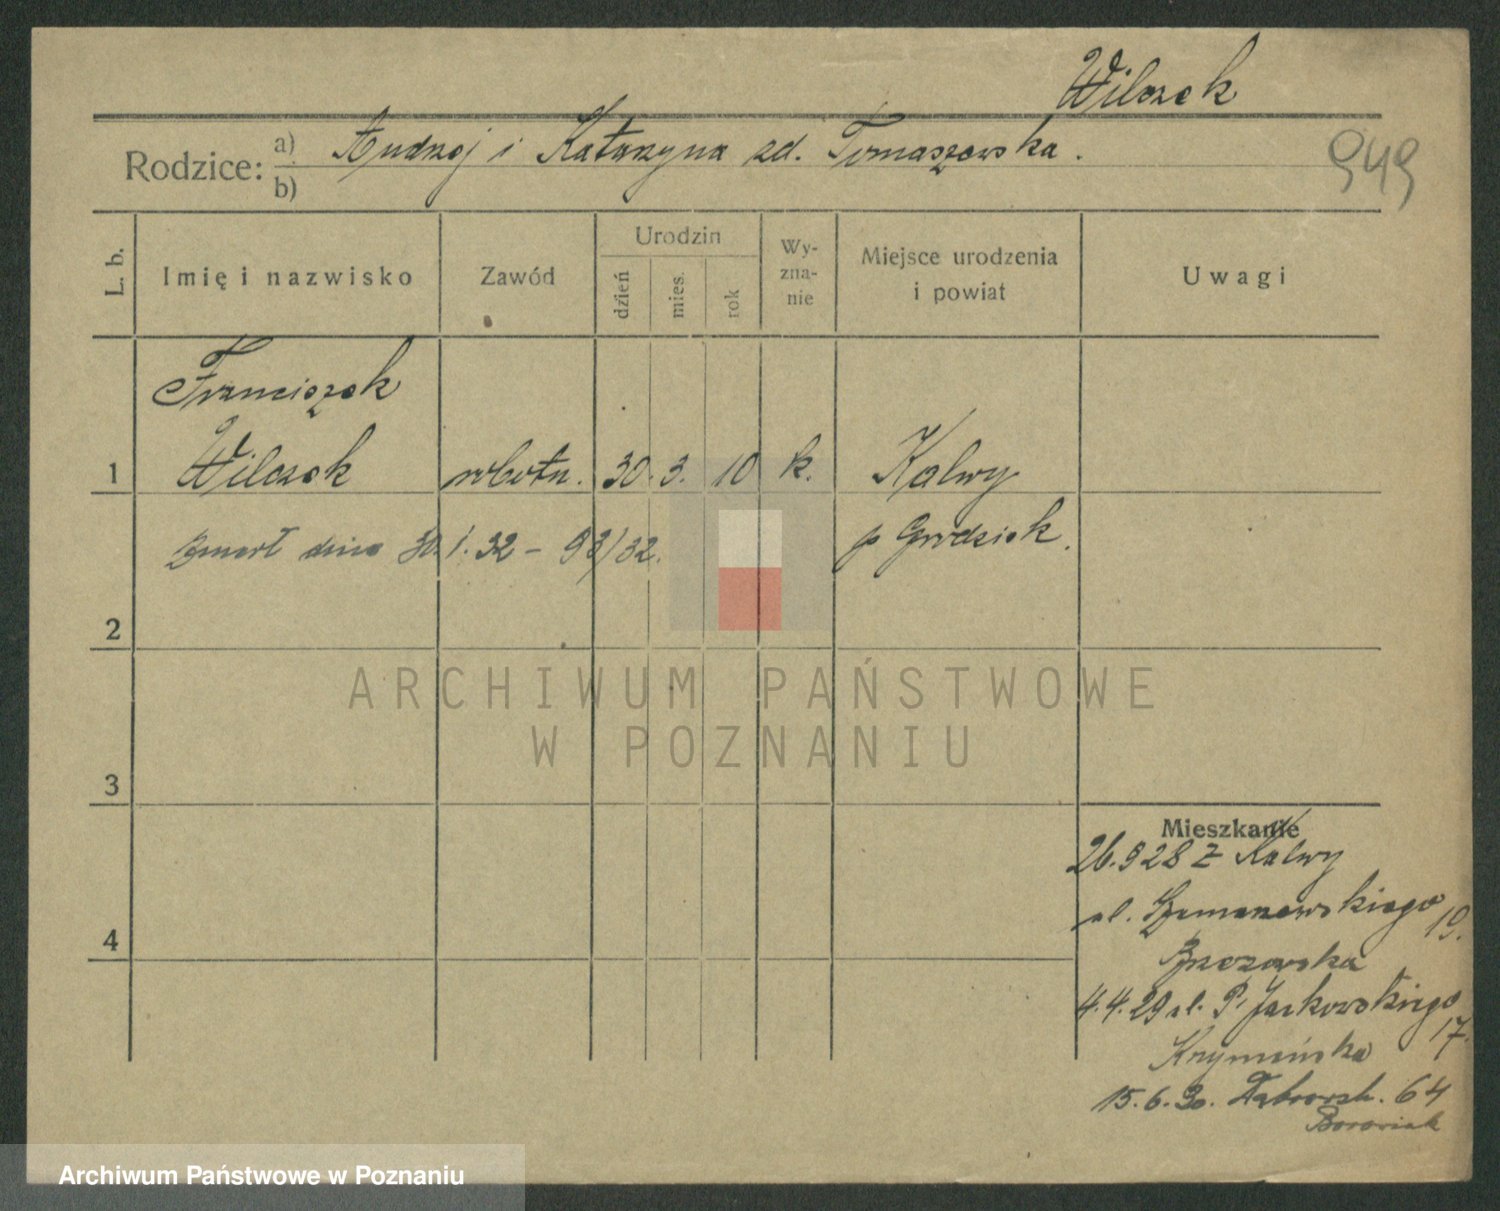 Wilczek
Rodzice: a) Andrzej i Katarzyna zd. Tomaszewska.
b)
949
L. b.
Imię i nazwisko
Zawód
Urodzin
dzień
mies.
rok
Wy-
zna-
nie
Miejsce urodzenia
i powiat
Uwagi
Franciszek
1 Wilczek robotn. 30. 3. 10 k. Kalwy
zmarł dnia 30. 1. 32 - 93/32. p Grodzisk.
2
ARCHIWUM PAŃSTWOWE
W POZNANIU
3
Mieszkanie
26.9 28 z Kalwy
ul. Szamarzewskiego 19.
Brzozowska
4
4.4.29 ul. P. Jackowskiego 17.
Krymańska
15.6.30. Dąbrowsk. 64
Borowiak
Archiwum Państwowe w Poznaniu